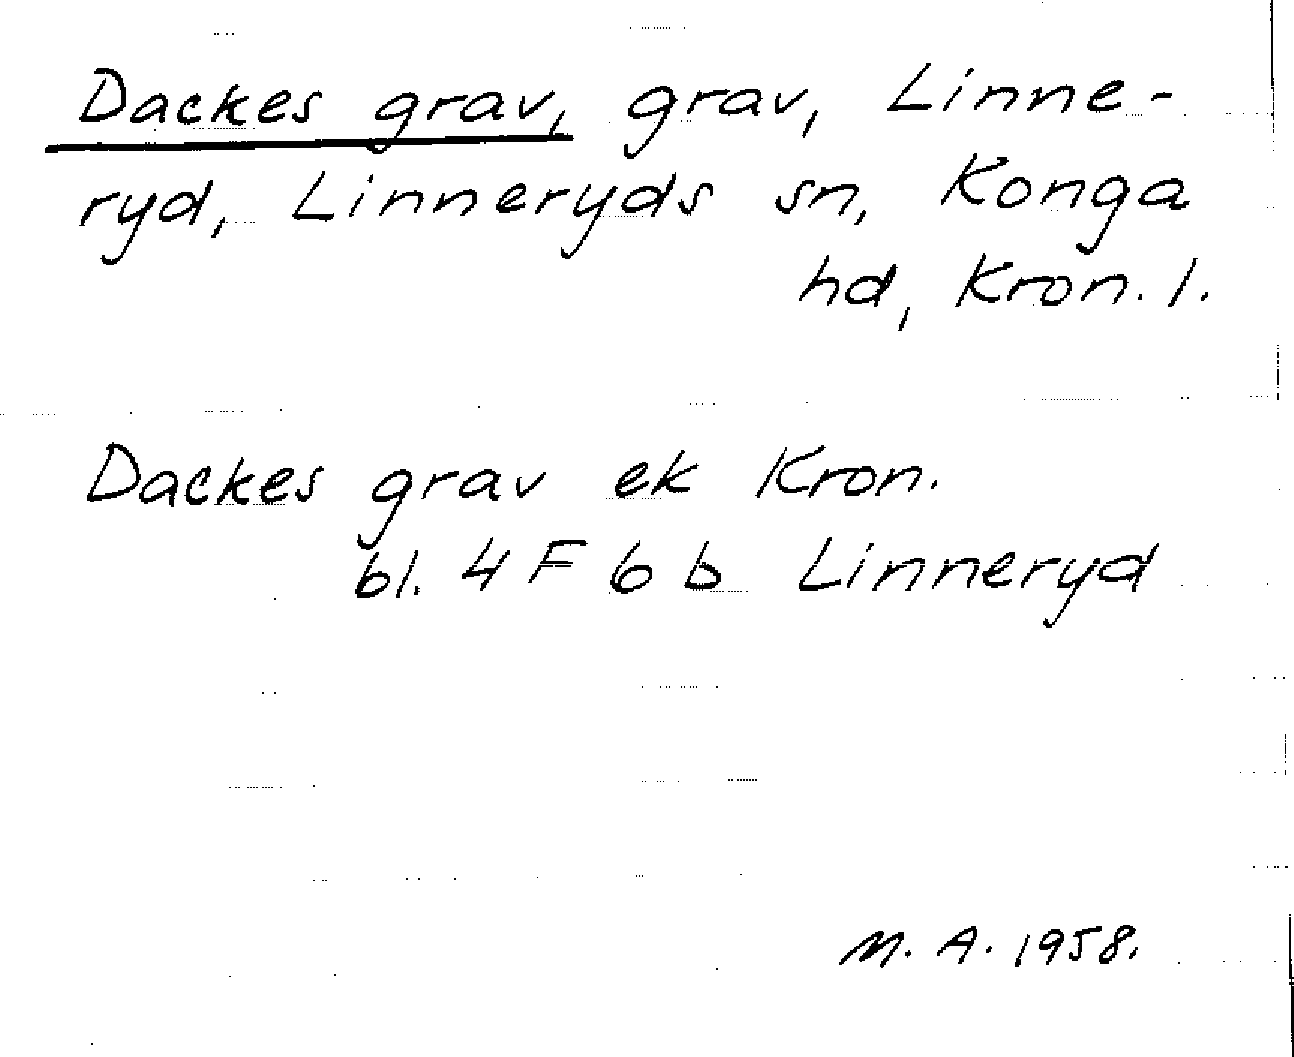 Dackes grav, grav, Linne-
ryd, Linneryds sn, Konga
hd, Kron. l.
Dackes grav ek Kron.
bl. 4 F 6 b Linneryd
M. A. 1958.